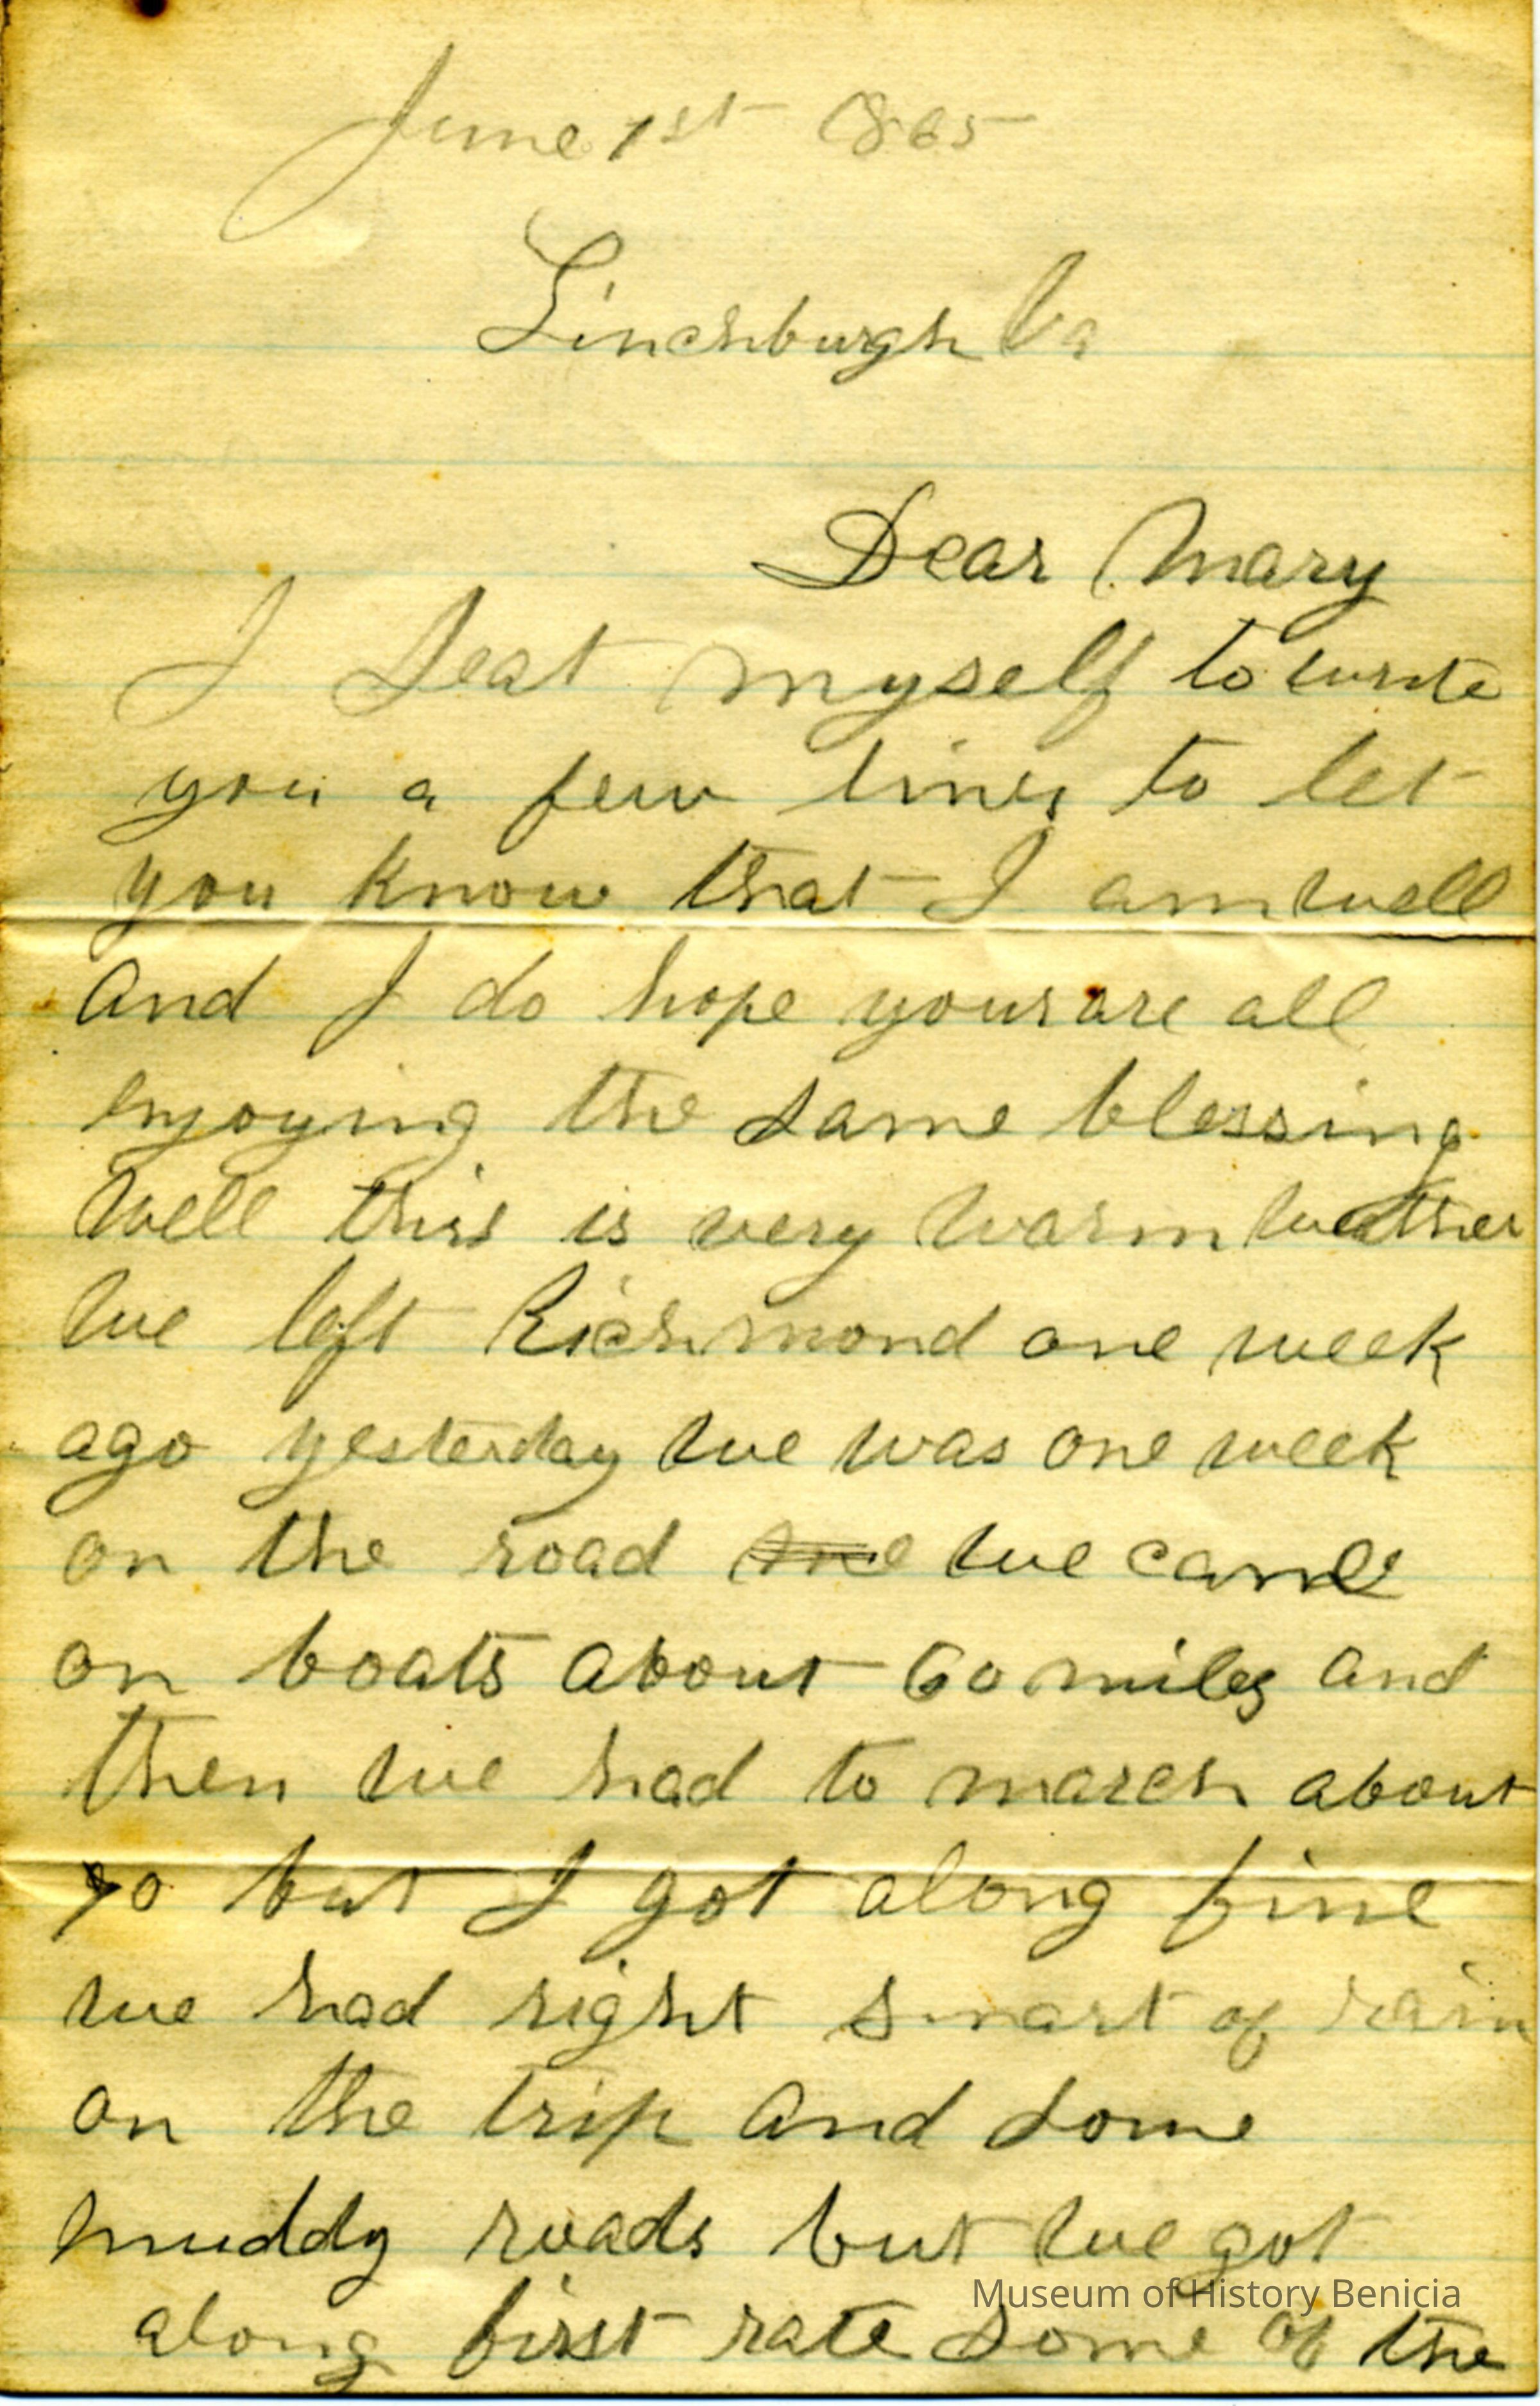 June 1st 1865
Linchburgh Va
Dear Mary
I Seat myself to write
you a few lines to let
you know that I am well
and I do hope yours are all
enjoying the same blessing
well this is very warm weather
we left Richmond one week
ago yesterday we was one week
on the road we came
on boats about 60 miles and
then we had to march about
70 but I got along fine
we had right smart of rain
on the trip and some
muddy roads but we got
Museum of History Benicia
along first rate some of the